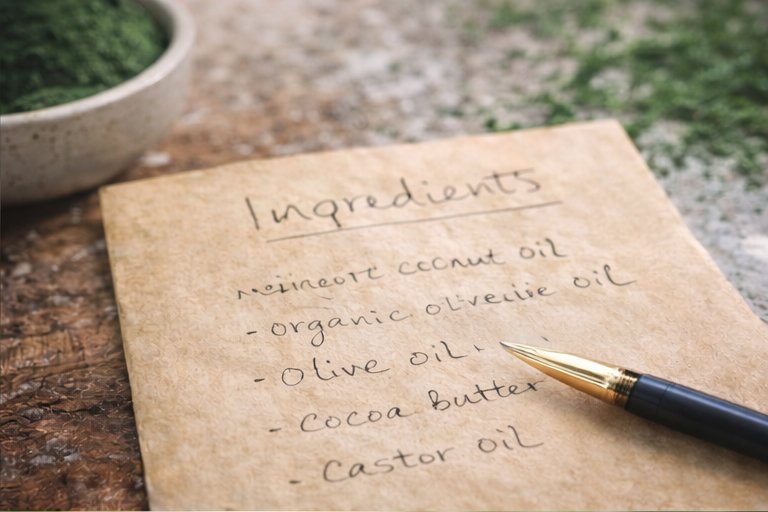 Ingredients
coconut oil
- organic oil
- Olive oil
- Cocoa butter
- Castor oil